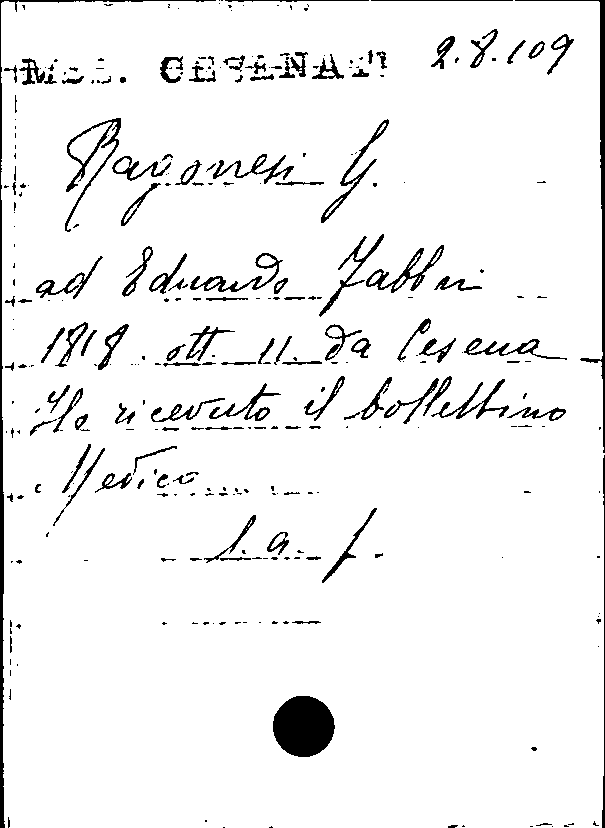 Mss. CESENATI 2.8.109
Ragonesi G.
ad Eduardo Fabbri
1818. ott. 11. da Cesena
Ha ricevuto il bollettino
Medico
l. a. f.